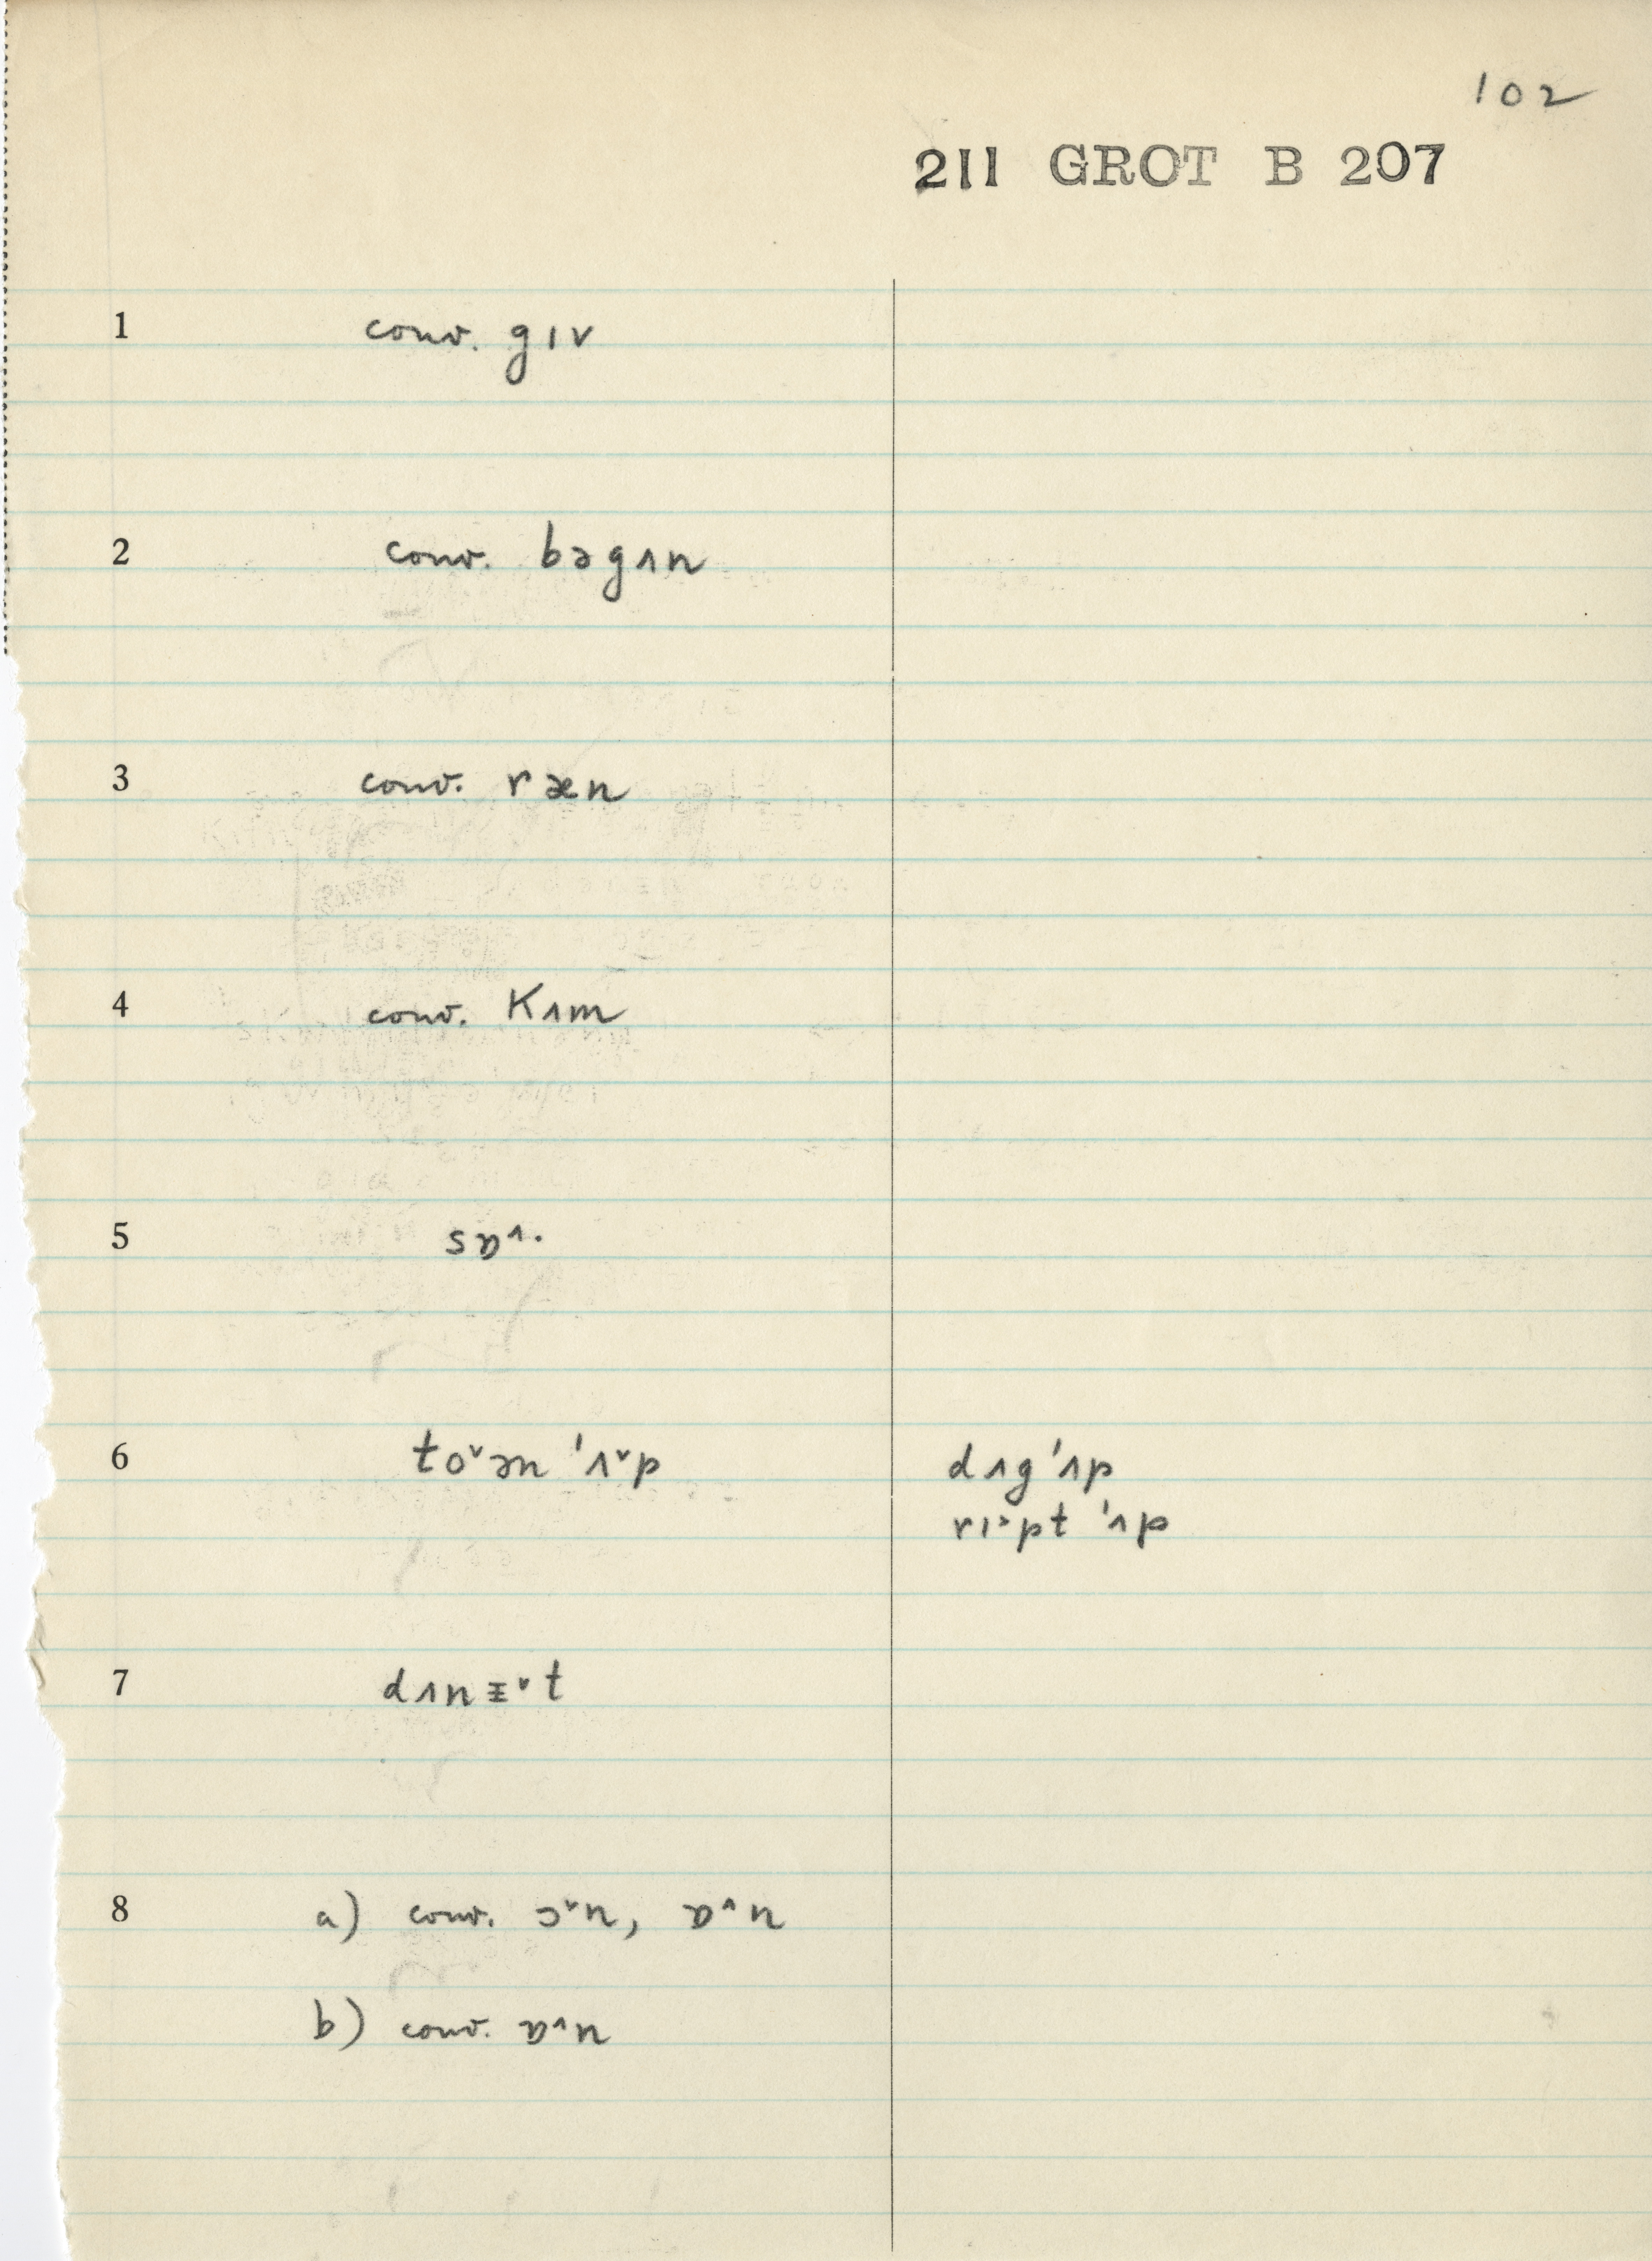 102
211 GROT B 207
1 conv. gıv
2 conv. bəgʌn
3 conv. ræn
4 conv. Kʌm
5 sɒ^.
6 to˅ən 'ʌ˅p dʌg'ʌp
rı˃pt 'ʌp
7 dʌn ᵻ˅t
8 a) conv. ɔ˅n, ɒ^n
b) conv. ɒ^n